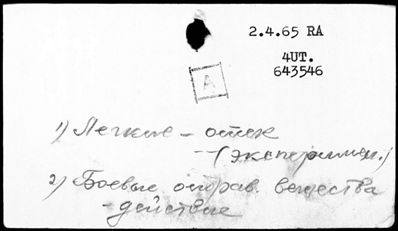 2.4.65 RA
4UT.
643546
A
1) Легкие – отек
– (эксперимен.)
2) Боевые отрав. вещества
– действие